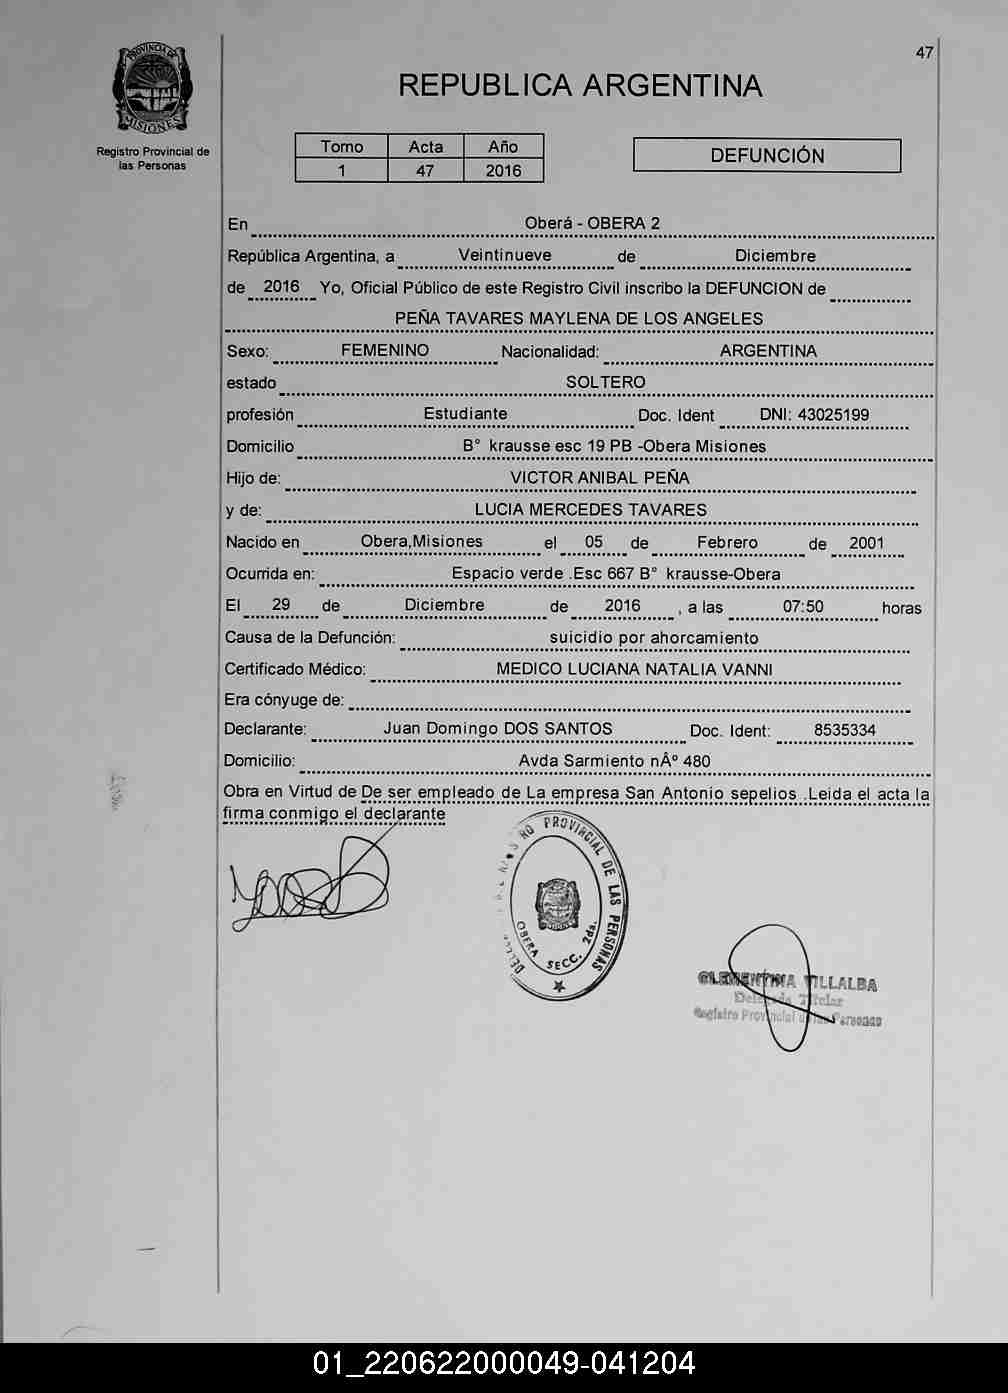 47
PROVINCIA DE
MISIONES
REPUBLICA ARGENTINA
Registro Provincial de
las Personas
Tomo Acta Año
1 47 2016
DEFUNCIÓN
En Oberá - OBERA 2
República Argentina, a Veintinueve de Diciembre
de 2016 Yo, Oficial Público de este Registro Civil inscribo la DEFUNCION de
PEÑA TAVARES MAYLENA DE LOS ANGELES
Sexo: FEMENINO Nacionalidad: ARGENTINA
estado SOLTERO
profesión Estudiante Doc. Ident DNI: 43025199
Domicilio B° krausse esc 19 PB -Obera Misiones
Hijo de: VICTOR ANIBAL PEÑA
y de: LUCIA MERCEDES TAVARES
Nacido en Obera,Misiones el 05 de Febrero de 2001
Ocurrida en: Espacio verde .Esc 667 B° krausse-Obera
El 29 de Diciembre de 2016 , a las 07:50 horas
Causa de la Defunción: suicidio por ahorcamiento
Certificado Médico: MEDICO LUCIANA NATALIA VANNI
Era cónyuge de:
Declarante: Juan Domingo DOS SANTOS Doc. Ident: 8535334
Domicilio: Avda Sarmiento nÂº 480
Obra en Virtud de De ser empleado de La empresa San Antonio sepelios .Leida el acta la
firma conmigo el declarante
PROVINCIAL DE LAS PERSONAS
OBERA SECC. 2da.
CLEMENTINA VILLALBA
Delegada Titular
Registro Provincial de las Personas
01_220622000049-041204